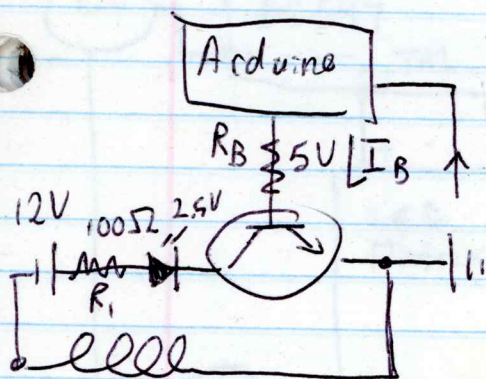 Arduino
R_B 5V I_B
12V 100Ω 2.5V
R_1